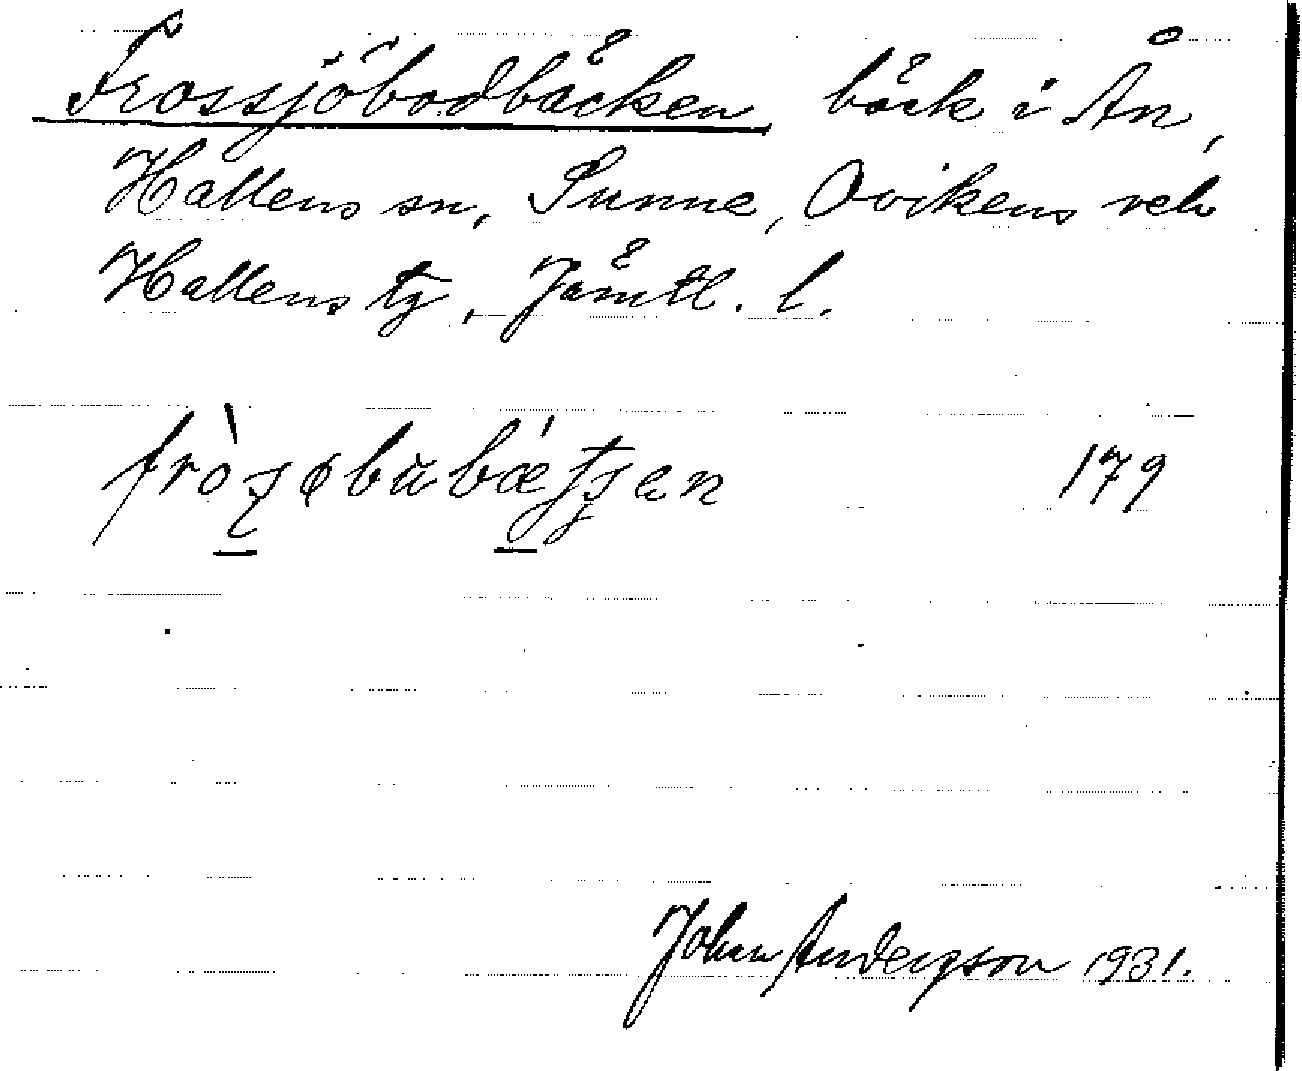 Frossjöbodbäcken bäck i Ån,
Hallens sn, Sunne, Ovikens och
Hallens tg, Jämtl. l.
fròʂøbubǽtʂen 179
Johan Anderson 1931.